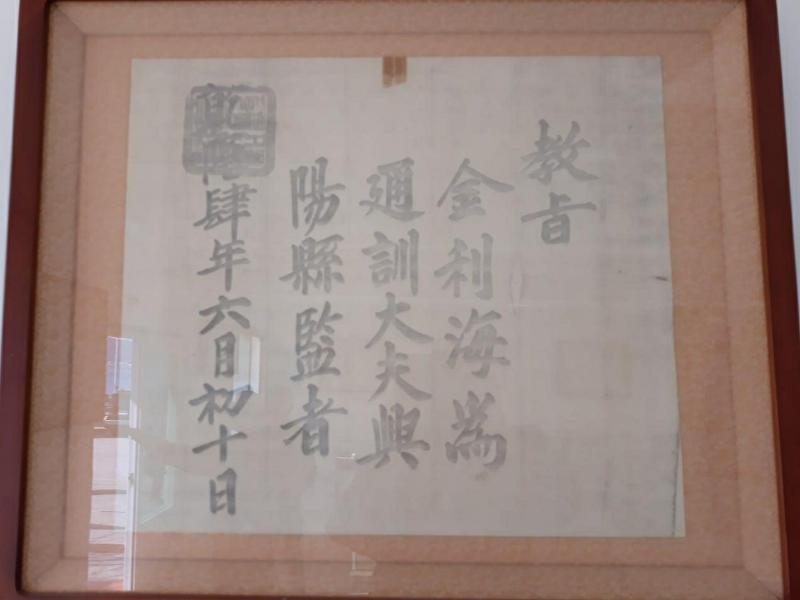 教旨
金利海爲
通訓大夫興
陽縣監者
乾隆肆年六月初十日